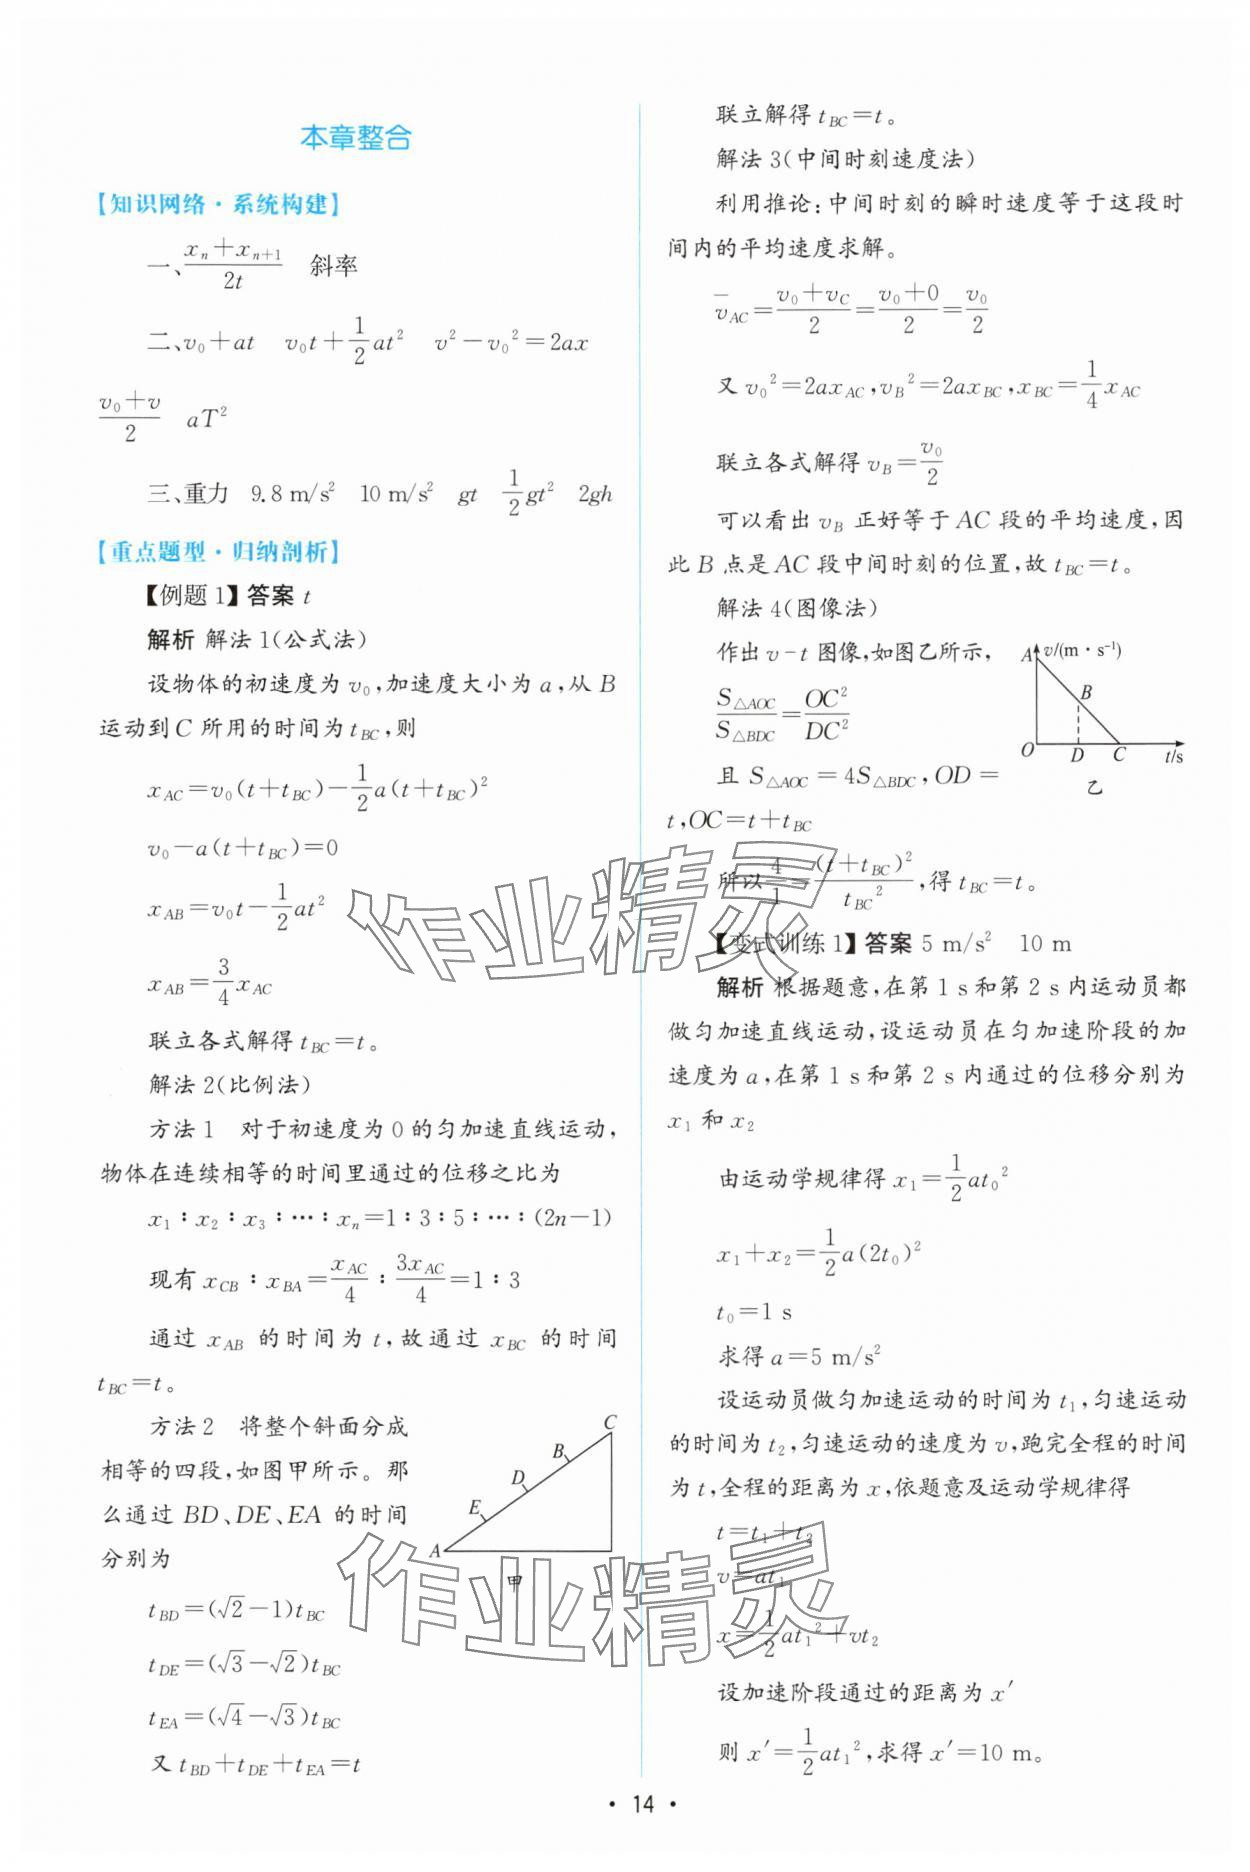 本章整合
【知识网络·系统构建】
一、$\frac{x_n+x_{n+1}}{2t}$ 斜率
二、$v_0+at$ $v_0t+\frac{1}{2}at^2$ $v^2-v_0{}^2=2ax$
$\frac{v_0+v}{2}$ $aT^2$
三、重力 9.8 m/s² 10 m/s² $gt$ $\frac{1}{2}gt^2$ $2gh$
【重点题型·归纳剖析】
【例题 1】答案 $t$
解析 解法 1(公式法)
设物体的初速度为 $v_0$,加速度大小为 $a$,从 B
运动到 C 所用的时间为 $t_{BC}$,则
$x_{AC}=v_0(t+t_{BC})-\frac{1}{2}a(t+t_{BC})^2$
$v_0-a(t+t_{BC})=0$
$x_{AB}=v_0t-\frac{1}{2}at^2$
$x_{AB}=\frac{3}{4}x_{AC}$
联立各式解得 $t_{BC}=t$。
解法 2(比例法)
方法 1 对于初速度为 0 的匀加速直线运动,
物体在连续相等的时间里通过的位移之比为
$x_1:x_2:x_3:\cdots:x_n=1:3:5:\cdots:(2n-1)$
现有 $x_{CB}:x_{BA}=\frac{x_{AC}}{4}:\frac{3x_{AC}}{4}=1:3$
通过 $x_{AB}$ 的时间为 $t$,故通过 $x_{BC}$ 的时间
$t_{BC}=t$。
方法 2 将整个斜面分成
相等的四段,如图甲所示。那
么通过 BD、DE、EA 的时间
分别为
C
B
D
E
A
甲
$t_{BD}=(\sqrt{2}-1)t_{BC}$
$t_{DE}=(\sqrt{3}-\sqrt{2})t_{BC}$
$t_{EA}=(\sqrt{4}-\sqrt{3})t_{BC}$
又 $t_{BD}+t_{DE}+t_{EA}=t$
联立解得 $t_{BC}=t$。
解法 3(中间时刻速度法)
利用推论:中间时刻的瞬时速度等于这段时
间内的平均速度求解。
$\overline{v}_{AC}=\frac{v_0+v_C}{2}=\frac{v_0+0}{2}=\frac{v_0}{2}$
又 $v_0{}^2=2ax_{AC},v_B{}^2=2ax_{BC},x_{BC}=\frac{1}{4}x_{AC}$
联立各式解得 $v_B=\frac{v_0}{2}$
可以看出 $v_B$ 正好等于 AC 段的平均速度,因
此 B 点是 AC 段中间时刻的位置,故 $t_{BC}=t$。
解法 4(图像法)
作出 v-t 图像,如图乙所示,
$\frac{S_{\triangle AOC}}{S_{\triangle BDC}}=\frac{OC^2}{DC^2}$
且 $S_{\triangle AOC}=4S_{\triangle BDC}$,OD=
A v/(m·s⁻¹)
B
O D C t/s
乙
$t,OC=t+t_{BC}$
所以 $\frac{4}{1}=\frac{(t+t_{BC})^2}{t_{BC}{}^2}$,得 $t_{BC}=t$。
【变式训练 1】答案 5 m/s² 10 m
解析 根据题意,在第 1 s 和第 2 s 内运动员都
做匀加速直线运动,设运动员在匀加速阶段的加
速度为 $a$,在第 1 s 和第 2 s 内通过的位移分别为
$x_1$ 和 $x_2$
由运动学规律得 $x_1=\frac{1}{2}at_0{}^2$
$x_1+x_2=\frac{1}{2}a(2t_0)^2$
$t_0=1$ s
求得 $a=5$ m/s²
设运动员做匀加速运动的时间为 $t_1$,匀速运动
的时间为 $t_2$,匀速运动的速度为 $v$,跑完全程的时间
为 $t$,全程的距离为 $x$,依题意及运动学规律得
$t=t_1+t_2$
$v=at_1$
$x=\frac{1}{2}at_1{}^2+vt_2$
设加速阶段通过的距离为 $x'$
则 $x'=\frac{1}{2}at_1{}^2$,求得 $x'=10$ m。
作业精灵
作业精灵
· 14 ·